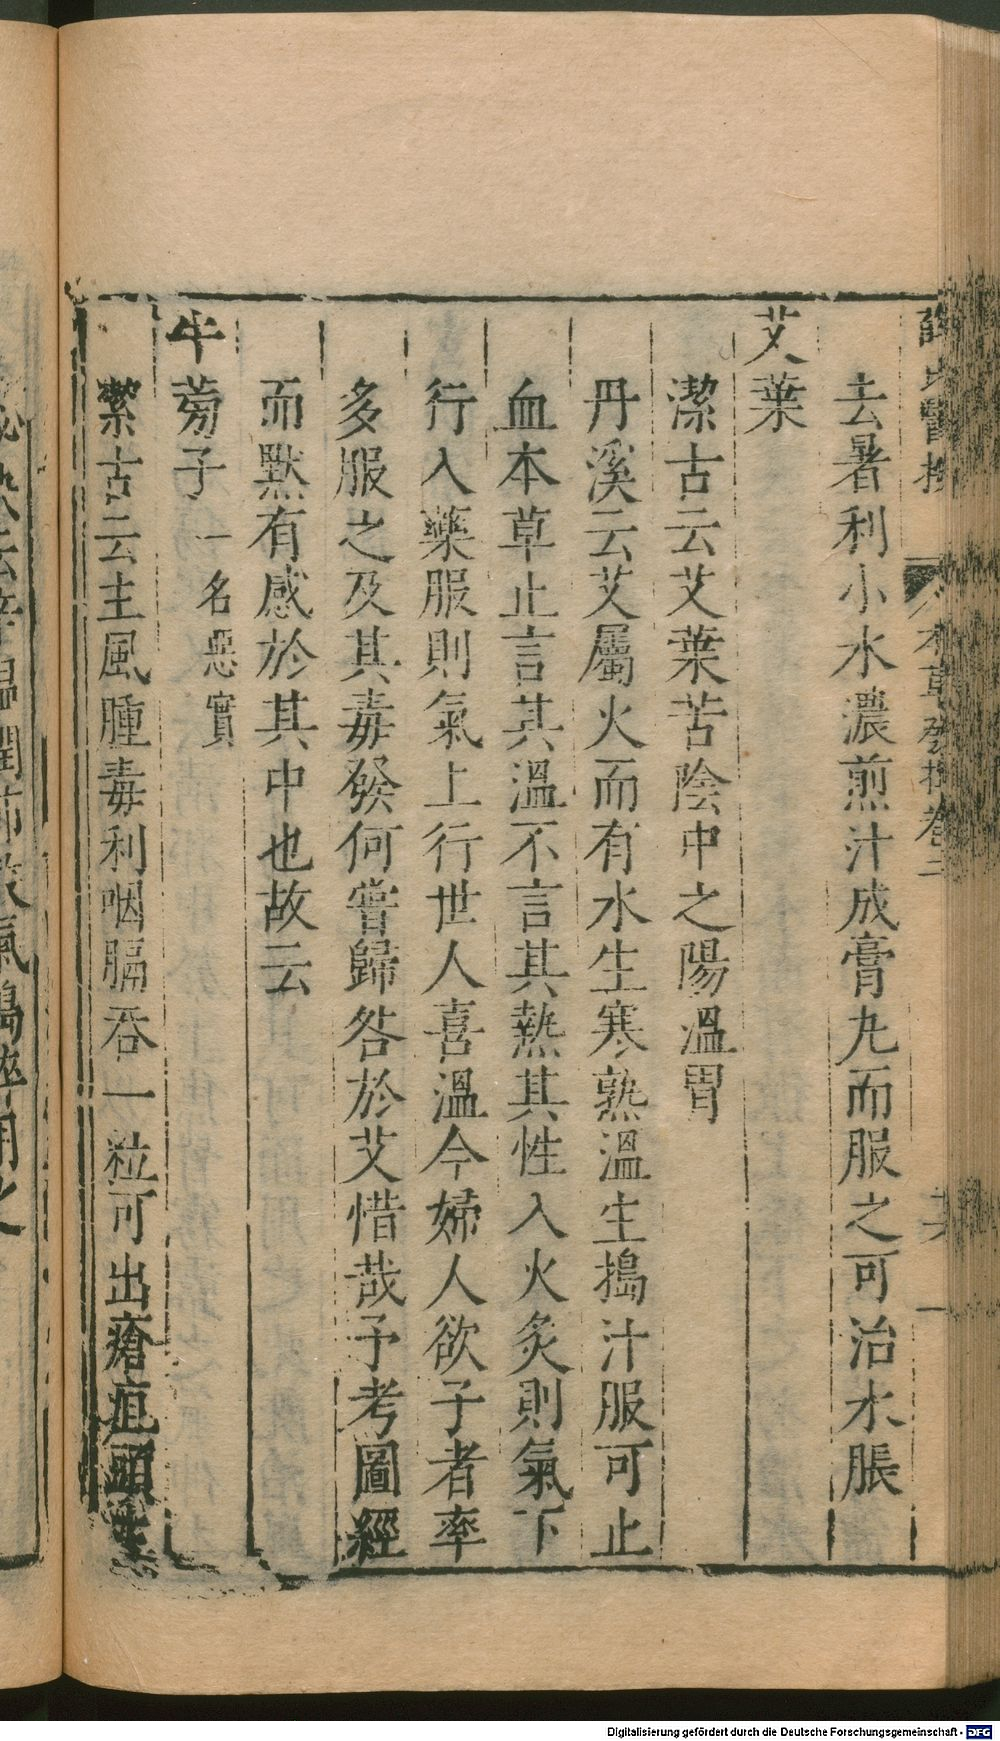 本草發揮卷二
去暑利小水濃煎汁成膏丸而服之可治水脹
艾葉
潔古云艾葉苦陰中之陽溫胃
丹溪云艾屬火而有水生寒熟溫生搗汁服可止
血本草止言其溫不言其熱其性入火炙則氣下
行入藥服則氣上行世人喜溫今婦人欲子者率
多服之及其毒發何嘗歸咎於艾惜哉予考圖經
而默有感於其中也故云
牛蒡子一名惡實
潔古云主風腫毒利咽膈吞一粒可出瘡疽頭
Digitalisierung gefördert durch die Deutsche Forschungsgemeinschaft - DFG